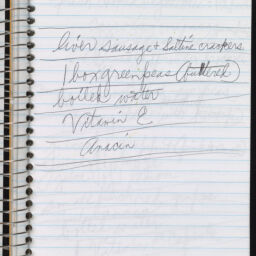 liver sausage + Saltine crackers
1 box green peas (buttered)
boiled water
Vitamin E
Anacin